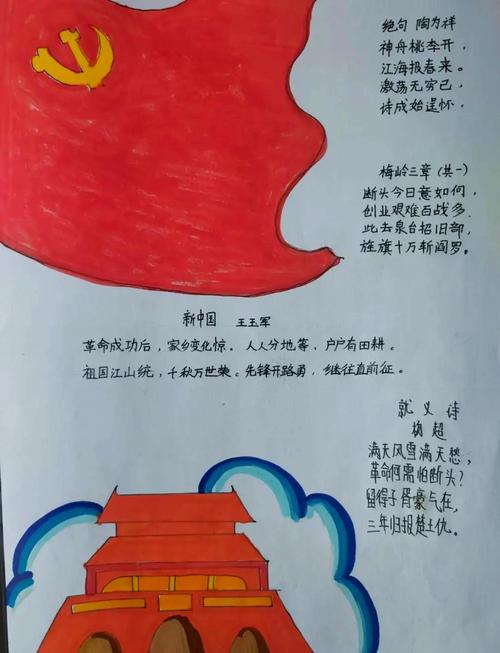 绝句 陶为祥
神舟桃李开，
江海报春来。
激荡无穷已，
诗成始逞怀，
梅岭三章（共一）
断头今日意如何，
创业艰难百战多，
此去泉台招旧部，
旌旗十万斩阎罗。
新中国 王玉军
革命成功后，家乡变化惊．人人分地等，户户有田耕。
祖国江山统，千秋万世荣。先锋开路勇，继往直前征。
就义诗
杨超
满天风雪满天愁，
革命何需怕断头？
留得子胥豪气在，
三年归报楚王仇。